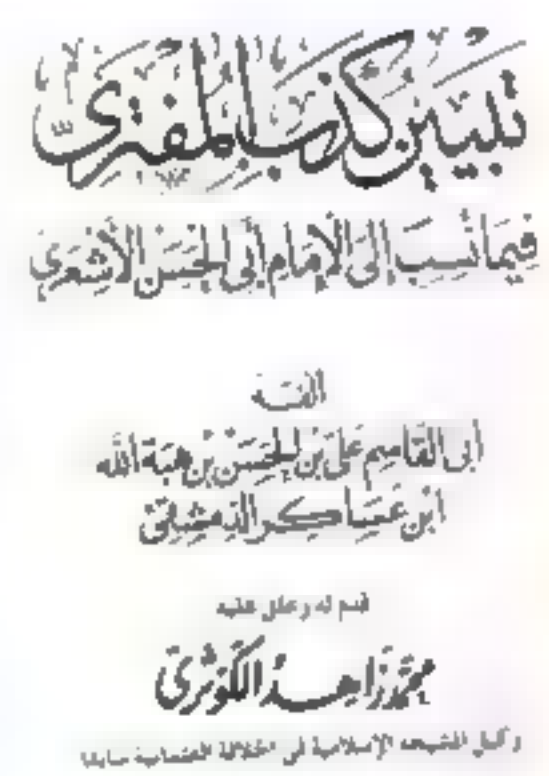 تبيين كذب المفترى
فيما نسب إلى الإمام أبي الحسن الأشعري
ألفه
أبي القاسم علي بن الحسن بن هبة الله
ابن عساكر الدمشقي
قدم له وعلق عليه
محمد زاهد الكوثري
وكيل المشيخة الإسلامية في الخلافة العثمانية سابقا